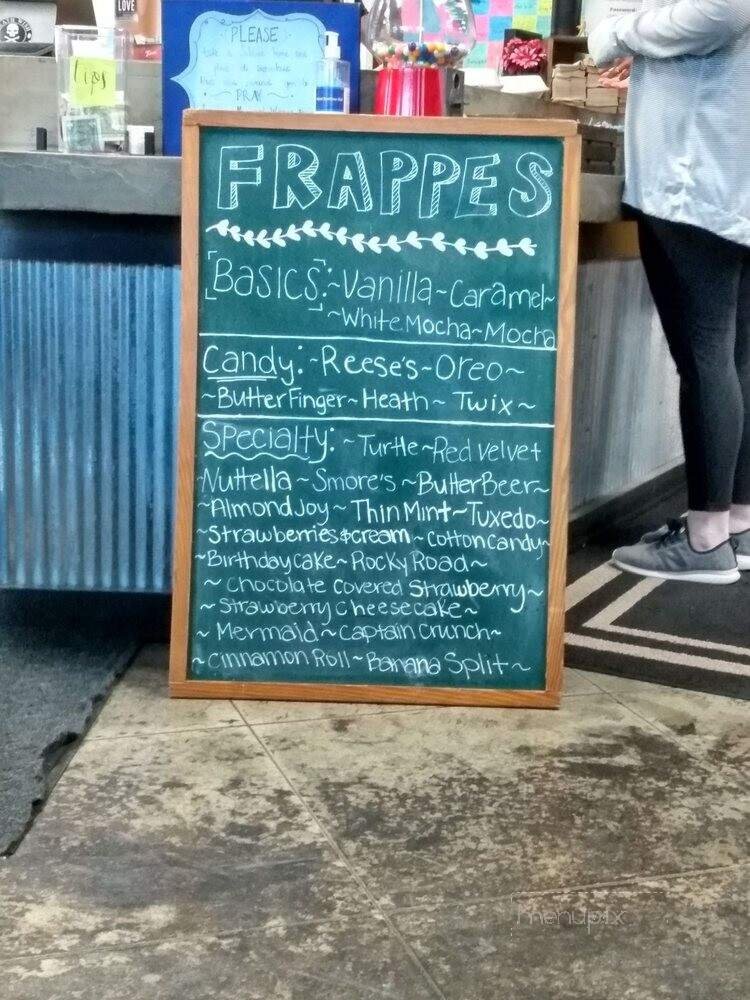 LOVE
tips
PLEASE
PRAY
FRAPPES
Basics: ~Vanilla~Caramel~
~White Mocha~Mocha
Candy: ~Reese's~Oreo~
~ButterFinger~Heath~ Twix~
Specialty: ~Turtle~Red velvet
Nuttella~Smore's~ButterBeer~
~AlmondJoy~ThinMint~Tuxedo~
~Strawberries&cream~cottoncandy~
~Birthdaycake~Rocky Road~
~Chocolate Covered Strawberry~
~Strawberry Cheesecake~
~Mermaid~Captain Crunch~
~Cinnamon Roll~Banana Split~
menupix